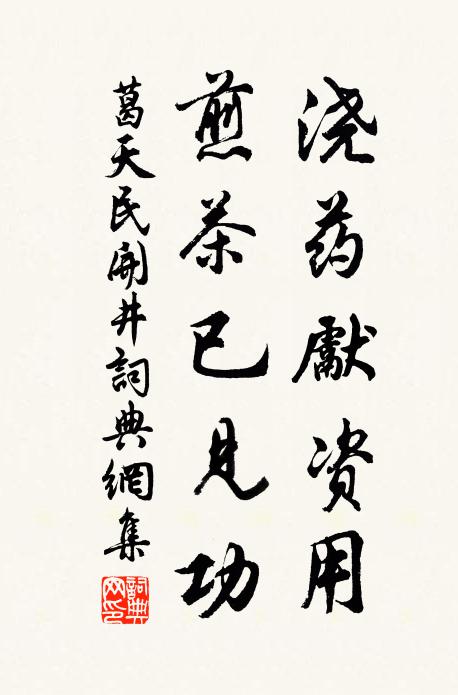 浇药獻资用
煎茶已见功
葛天民開井詞典網集
詞典
网印